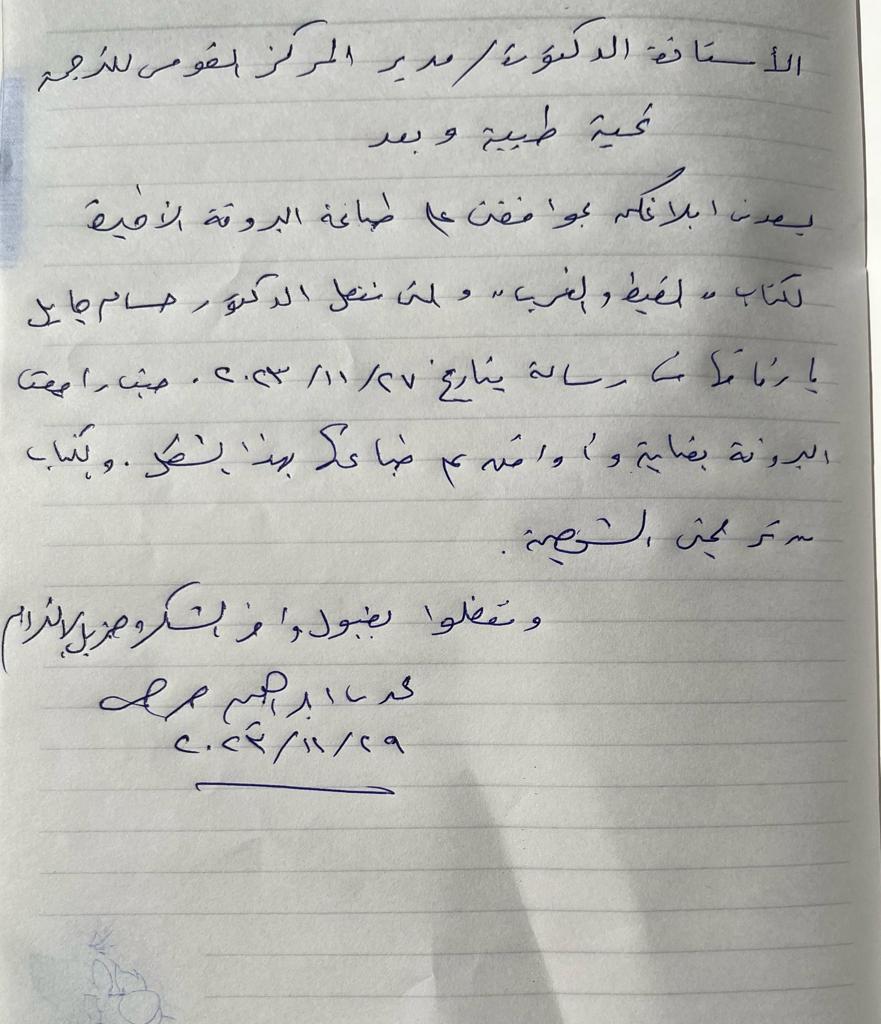 الأستاذة الدكتورة / مدير المركز القومى للترجمة
تحية طيبة وبعد
يسعدنى ابلاغكم بموافقتى على طباعة البروفة الأخيرة
لكتاب " و الغرب " و التى تفضل الدكتور حسام نايل
بارفاقها رسالة بتاريخ ٢٠٢٣/١١/٢٧ . حيث راجعت
البروفة بعناية وأوافق على طباعتها بهذا الشكل . والكتاب
الشخصية .
وتفضلوا بقبول وافر الشكر وجزيل الاحترام
ابراهيم
٢٠٢٣/١١/٢٩